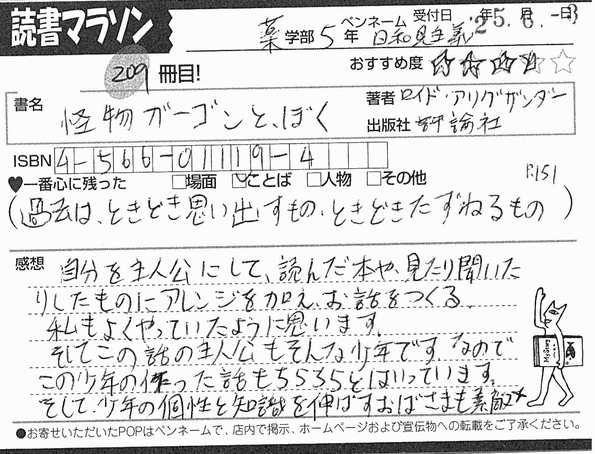 読書マラソン
薬学部5年 ペンネーム 日和見主義 受付日
209冊目!
おすすめ度 ☆☆☆☆☆
書名 怪物ガーゴンと、ぼく
著者 ロイド・アリグザンダー
出版社 評論社
ISBN 4-566-01119-4
♥一番心に残った □場面 ☑ことば □人物 □その他
P.151
(過去は、ときどき思い出すもの、ときどきたずねるもの)
感想 自分を主人公にして、読んだ本や、見たり聞いた
りしたものにアレンジを加え、お話をつくる。
私もよくやっていたように思います。
そしてこの話の主人公もそんな少年です。なので
この少年の作った話もちらほらとはいっています。
そして、少年の個性と知識を伸ばすおばさまも素敵です
●お寄せいただいたPOPはペンネームで、店内で掲示、ホームページおよび宣伝物への転載をご了承ください。